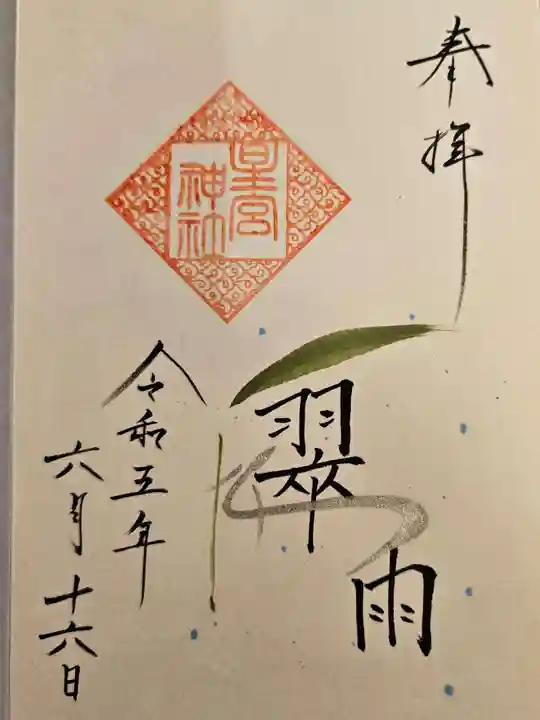 奉拝
星宮
神社
翠雨
令和五年
六月十六日